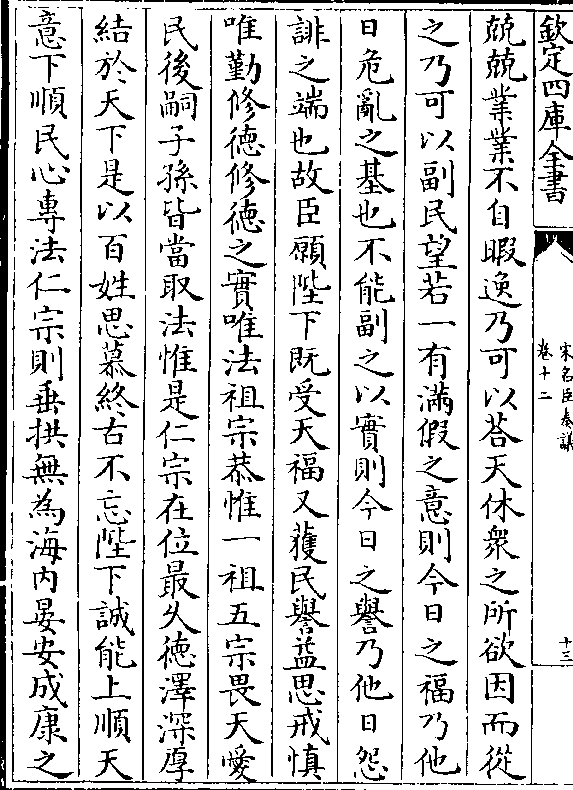 欽定四庫全書
宋名臣奏議
卷十二
十三
兢兢業業不自暇逸乃可以荅天休衆之所欲因而從
之乃可以副民望若一有滿假之意則今日之福乃他
日危亂之基也不能副之以實則今日之譽乃他日怨
誹之端也故臣願陛下既受天福又蒦民譽益思戒慎
唯勤修德修德之實唯法祖宗恭惟一祖五宗畏天愛
民後嗣子孫皆當取法惟是仁宗在位最久德澤深厚
結於天下是以百姓思慕終古不忘陛下誠能上順天
意下順民心專法仁宗則垂拱無為海内晏安成康之